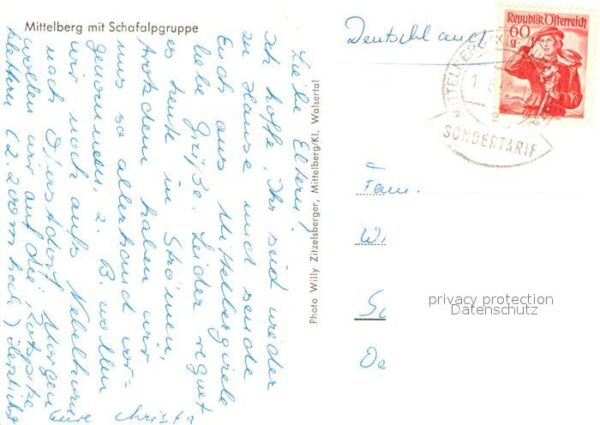 Mittelberg mit Schafalpgruppe
Liebe Eltern!
Ich hoffe, Ihr seid wieder
zu Hause und sende
Euch aus Mittelberg viele
liebe Grüße. Leider regnet
es heute in Strömen,
trotzdem haben wir
uns so allerhand vor-
genommen, z. B. wollen
wir noch aufs
nach Oberstdorf. Morgen
wollen wir auf die
(2.200 m hoch) Herzlichst
Eure Christa
Photo Willy Zitzelsberger, Mittelberg/Kl. Walsertal
Deutschland
Republik Österreich
60
g
MITTELBERG
SONDERTARIF
Fam.
W
S
privacy protection
Datenschutz